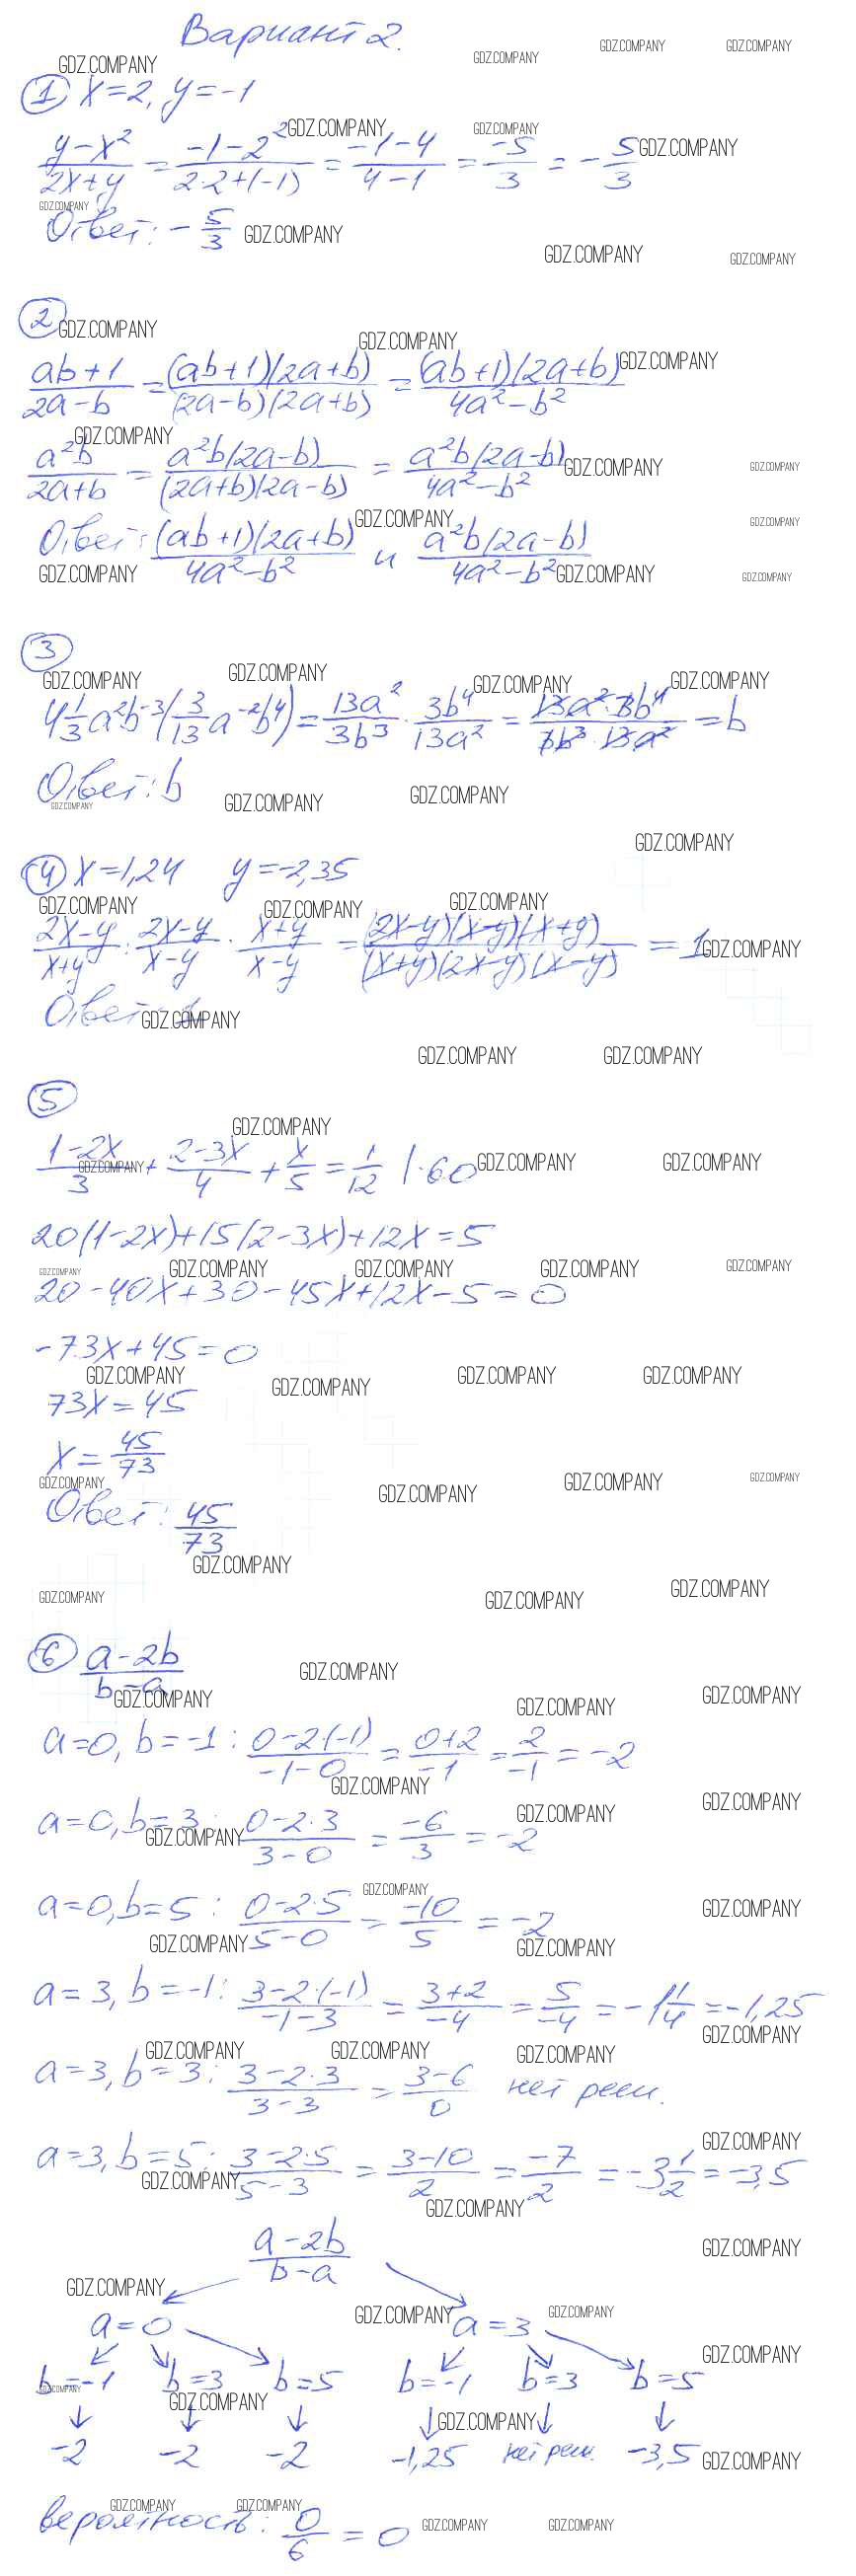 Вариант 2.
① x=2, y=-1
(y-x²)/(2x+y) = (-1-2²)/(2·2+(-1)) = (-1-4)/(4-1) = -5/3 = -5/3
Ответ: -5/3
②
(ab+1)/(2a-b) = (ab+1)(2a+b)/(2a-b)(2a+b) = (ab+1)(2a+b)/(4a²-b²)
a²b/(2a+b) = a²b(2a-b)/(2a+b)(2a-b) = a²b(2a-b)/(4a²-b²)
Ответ: (ab+1)(2a+b)/(4a²-b²) и a²b(2a-b)/(4a²-b²)
③
4 1/3 a²b⁻³(3/13 a⁻²b⁴) = 13a²/3b³ · 3b⁴/13a² = 13a²·3b⁴/3b³·13a² = b
Ответ: b
④ x=1,24 y=-2,35
(2x-y)/(x+y) : (2x-y)/(x-y) · (x+y)/(x-y) = (2x-y)(x-y)(x+y)/(x+y)(2x-y)(x-y) = 1
Ответ: 1
⑤
(1-2x)/3 + (2-3x)/4 + x/5 = 1/12 |·60
20(1-2x)+15(2-3x)+12x=5
20-40x+30-45x+12x-5=0
-73x+45=0
73x=45
x=45/73
Ответ: 45/73
⑥ (a-2b)/(b-a)
a=0, b=-1: (0-2·(-1))/(-1-0) = (0+2)/-1 = 2/-1 = -2
a=0, b=3: (0-2·3)/(3-0) = -6/3 = -2
a=0, b=5: (0-2·5)/(5-0) = -10/5 = -2
a=3, b=-1: (3-2·(-1))/(-1-3) = (3+2)/-4 = 5/-4 = -1 1/4 = -1,25
a=3, b=3: (3-2·3)/(3-3) = (3-6)/0 нет реш.
a=3, b=5: (3-2·5)/(5-3) = (3-10)/2 = -7/2 = -3 1/2 = -3,5
(a-2b)/(b-a)
a=0 a=3
b=-1 b=3 b=5 b=-1 b=3 b=5
-2 -2 -2 -1,25 нет реш. -3,5
вероятность: 0/6 = 0
GDZ.COMPANY